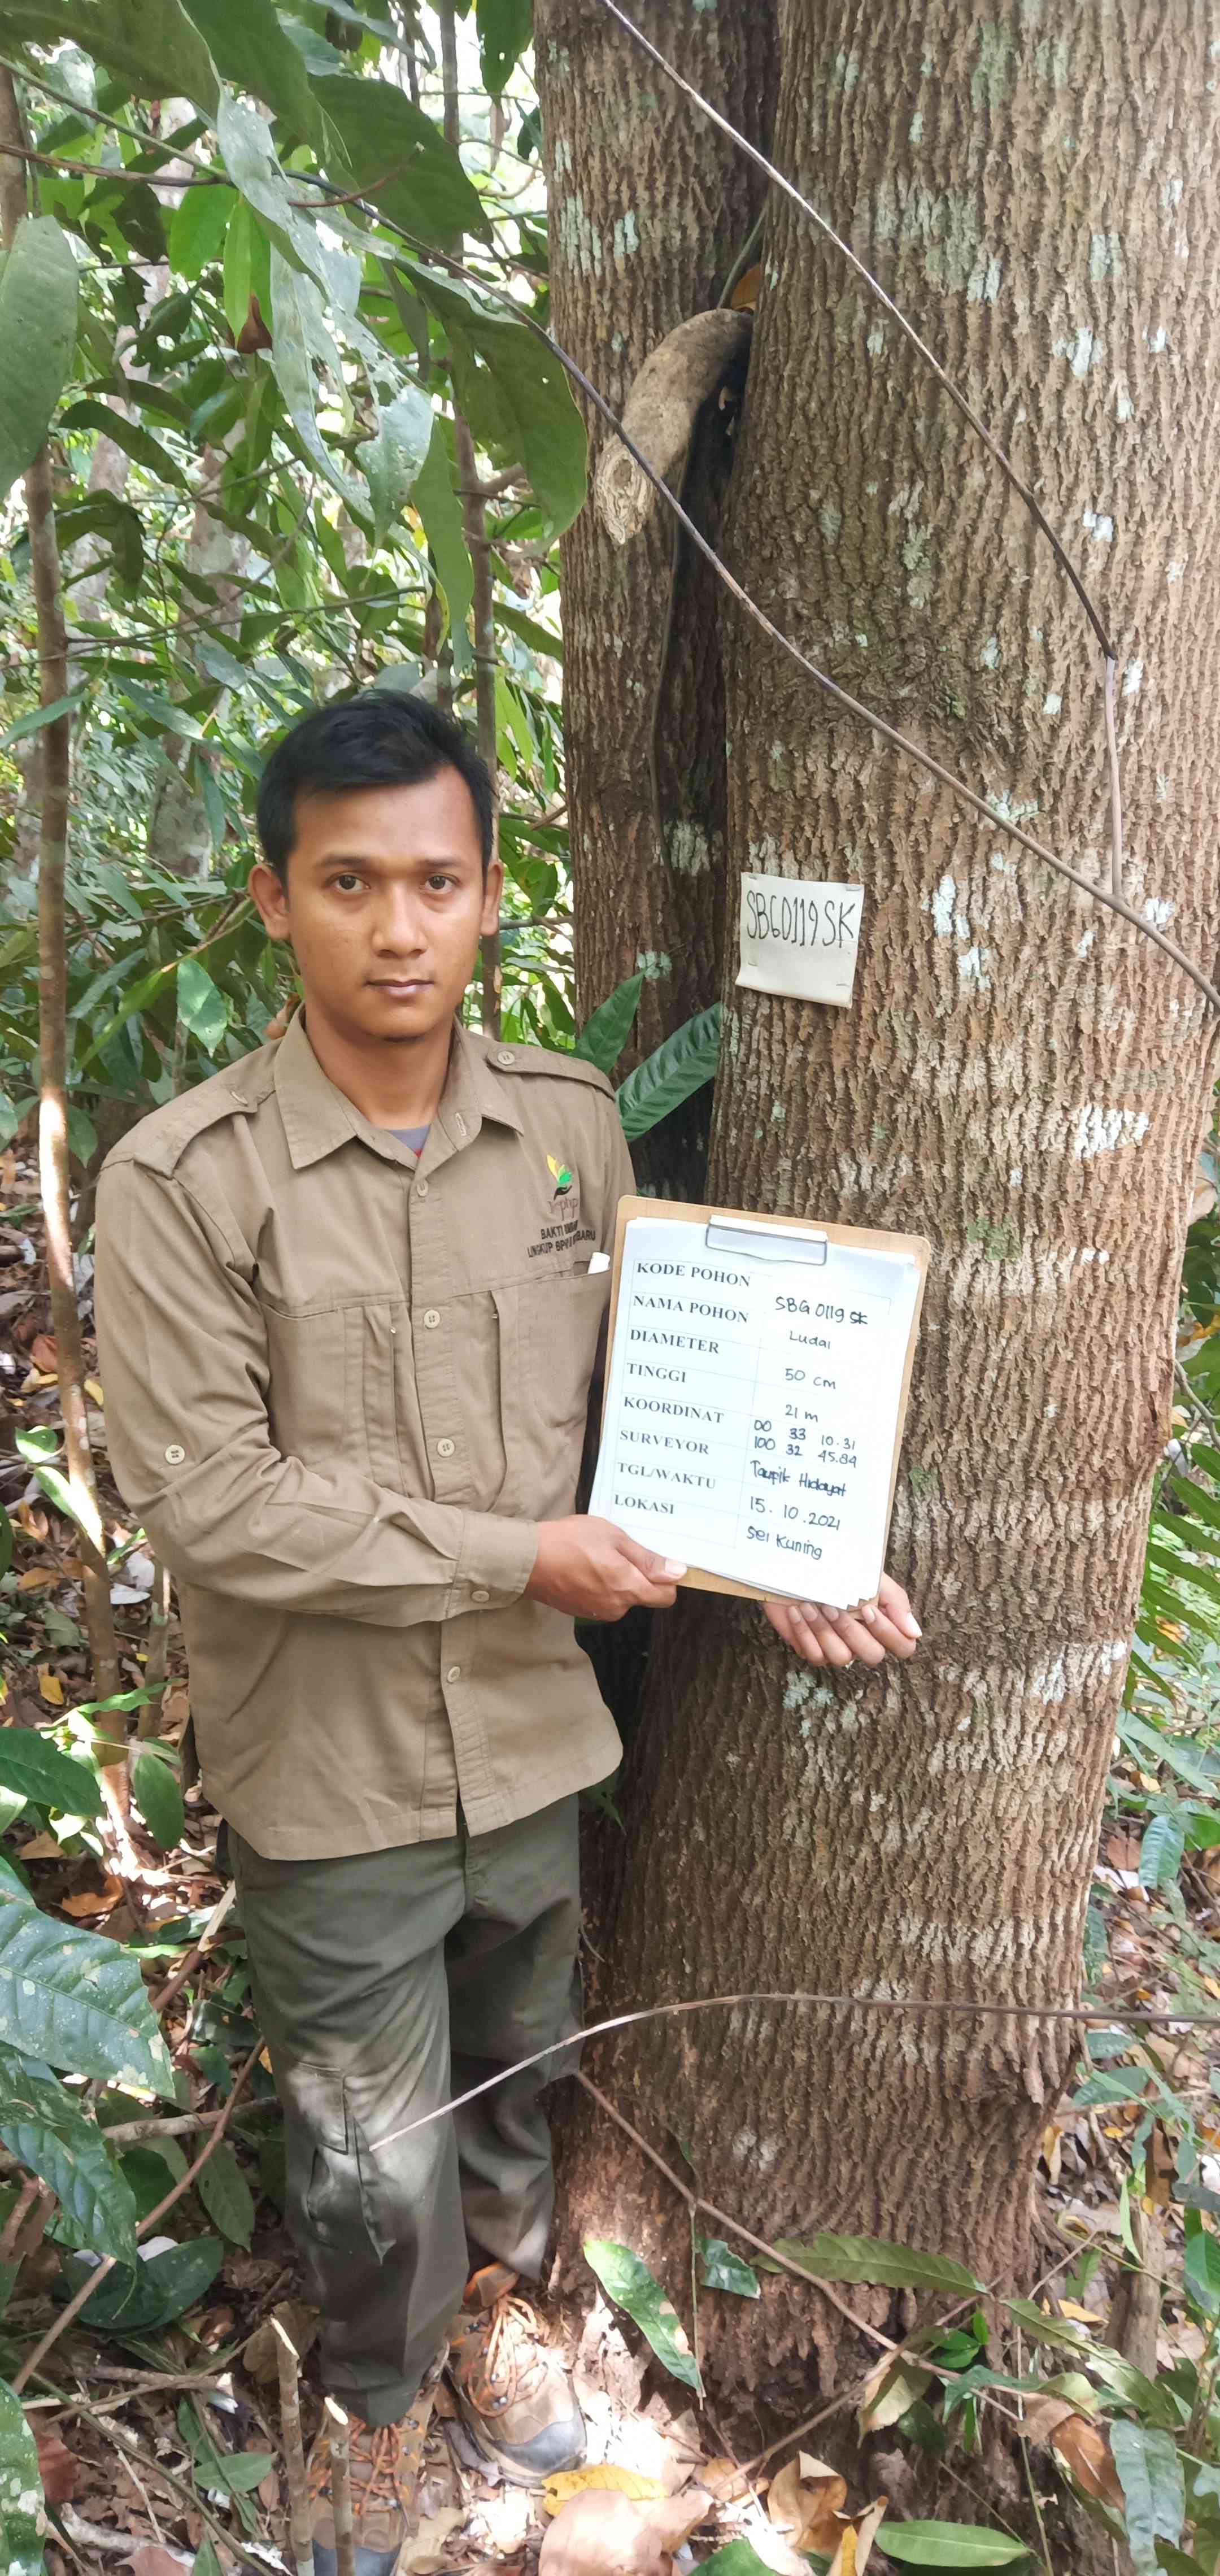 SBG0119SK
BAKTI
KODE POHON SBG 0119 SK
NAMA POHON Ludai
DIAMETER 50 cm
TINGGI 21 m
KOORDINAT 00 33 10.31
100 32 45.84
SURVEYOR Taupik Hidayat
TGL/WAKTU 15.10.2021
LOKASI Sei Kuning